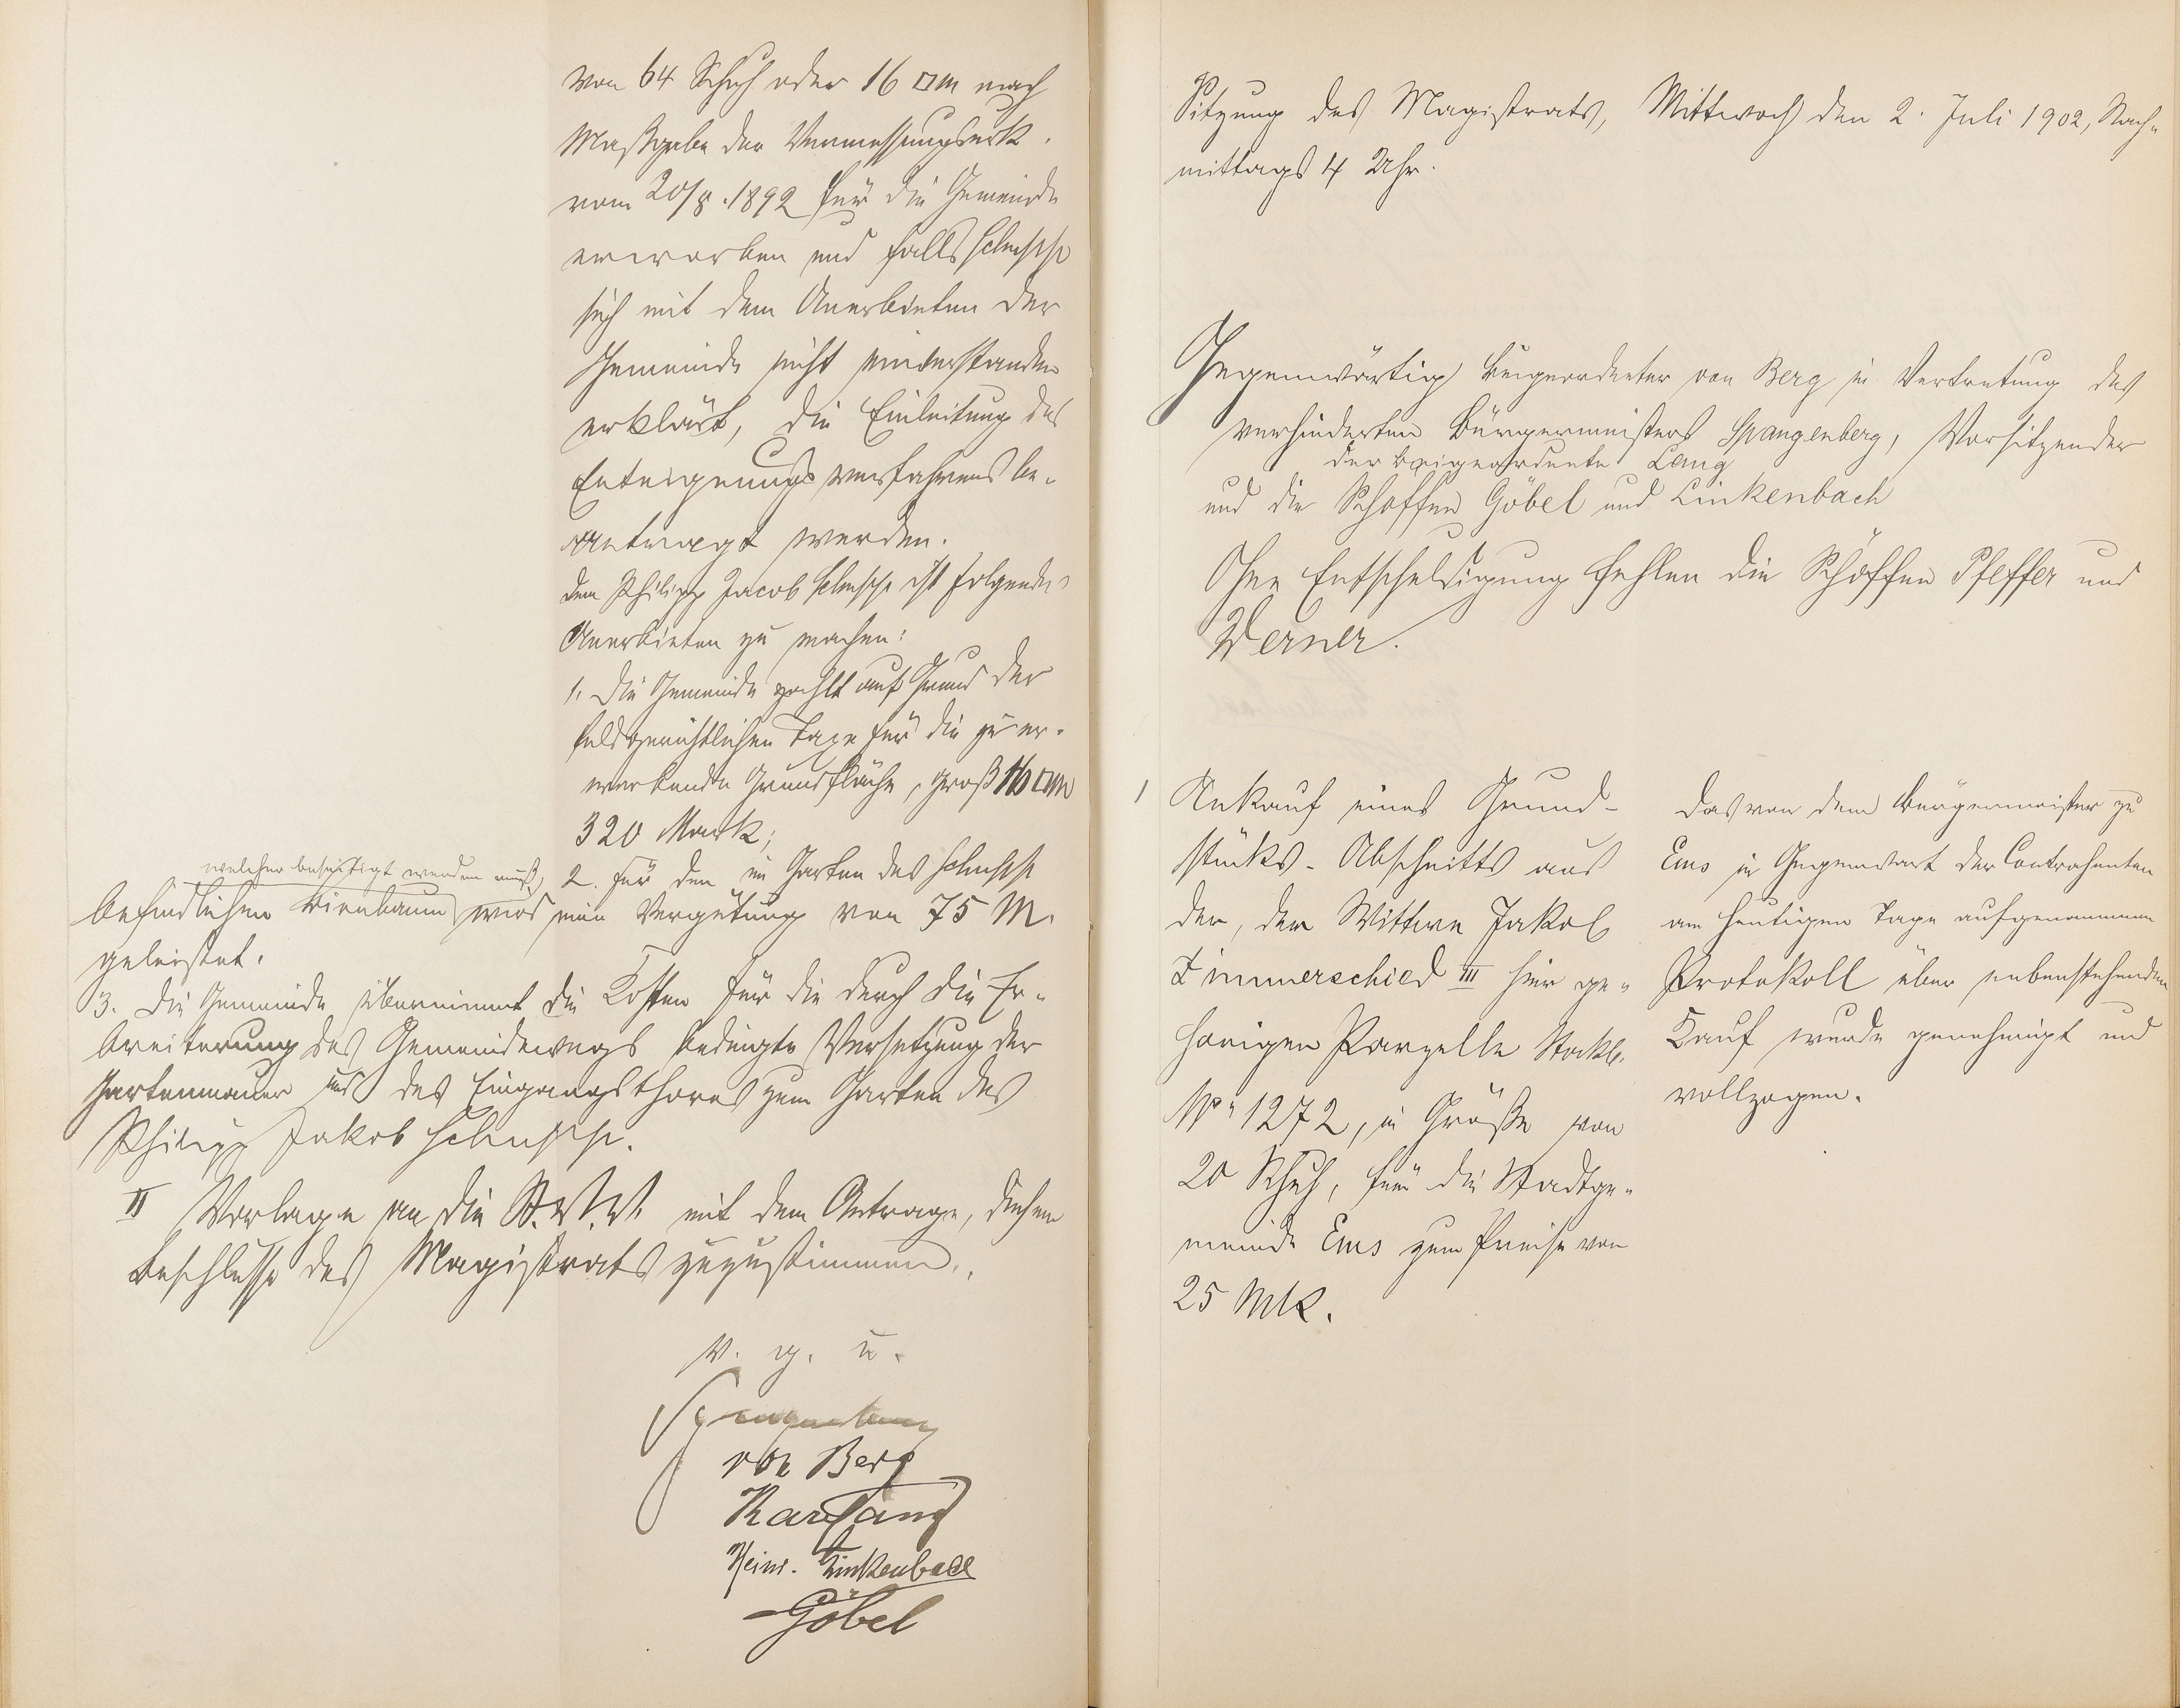 von 64 Schuh oder 16 □m nach
Maßgabe der Vermessungsurk.
vom 20/8. 1892 für die Gemeinde
erworben und falls Schupp
sich mit dem Anerbieten der
Gemeinde nicht einverstanden
erklärt, die Einleitung des
Enteignungsverfahrens be-
antragt werden.
Dem Philipp Jacob Schupp ist folgendes
Anerbieten zu machen:
1. Die Gemeinde zahlt auf Grund der
feldgerichtlichen Taxe für die zu er-
werbende Grundfläche, groß 16 □m
320 Mark;
2. für den im Garten des Schupp
welcher beseitigt werden muß,
befindlichen Birnbaum wird eine Vergütung von 75 M.
geleistet.
3. Die Gemeinde übernimmt die Kosten für die durch die Er-
breiterung des Gemeindewegs bedingte Versetzung der
Gartenmauer und des Eingangsthores zum Garten des
Philipp Jakob Schupp.
II Vorlage an die St.V.V. mit dem Antrage, diesem
Beschlusse des Magistrats zuzustimmen.
v. g. u.
Spangenberg
von Berg
Karl Lang
Heinr. Linkenbach
Göbel
Sitzung des Magistrats, Mittwoch den 2. Juli 1902, Nach-
mittags 4 Uhr.
Gegenwärtig Beigeordneter von Berg in Vertretung des
verhinderten Bürgermeisters Spangenberg, Vorsitzender
der Beigeordnete Lang
und die Schöffen Göbel und Linkenbach
Ohne Entschuldigung fehlen die Schöffen Pfeffer und
Werner.
1 Ankauf eines Grund-
stücks-Abschnitts aus
der, der Wittwe Jakob
Zimmerschied III hier ge-
hörigen Parzelle Stockb.
No 1272, in Größe von
20 Schuh, für die Stadtge-
meinde Ems zum Preise von
25 Mk.
Das von dem Bürgermeister zu
Ems in Gegenwart der Contrahenten
am heutigen Tage aufgenommene
Protokoll über nebenstehenden
Kauf wurde genehmigt und
vollzogen.